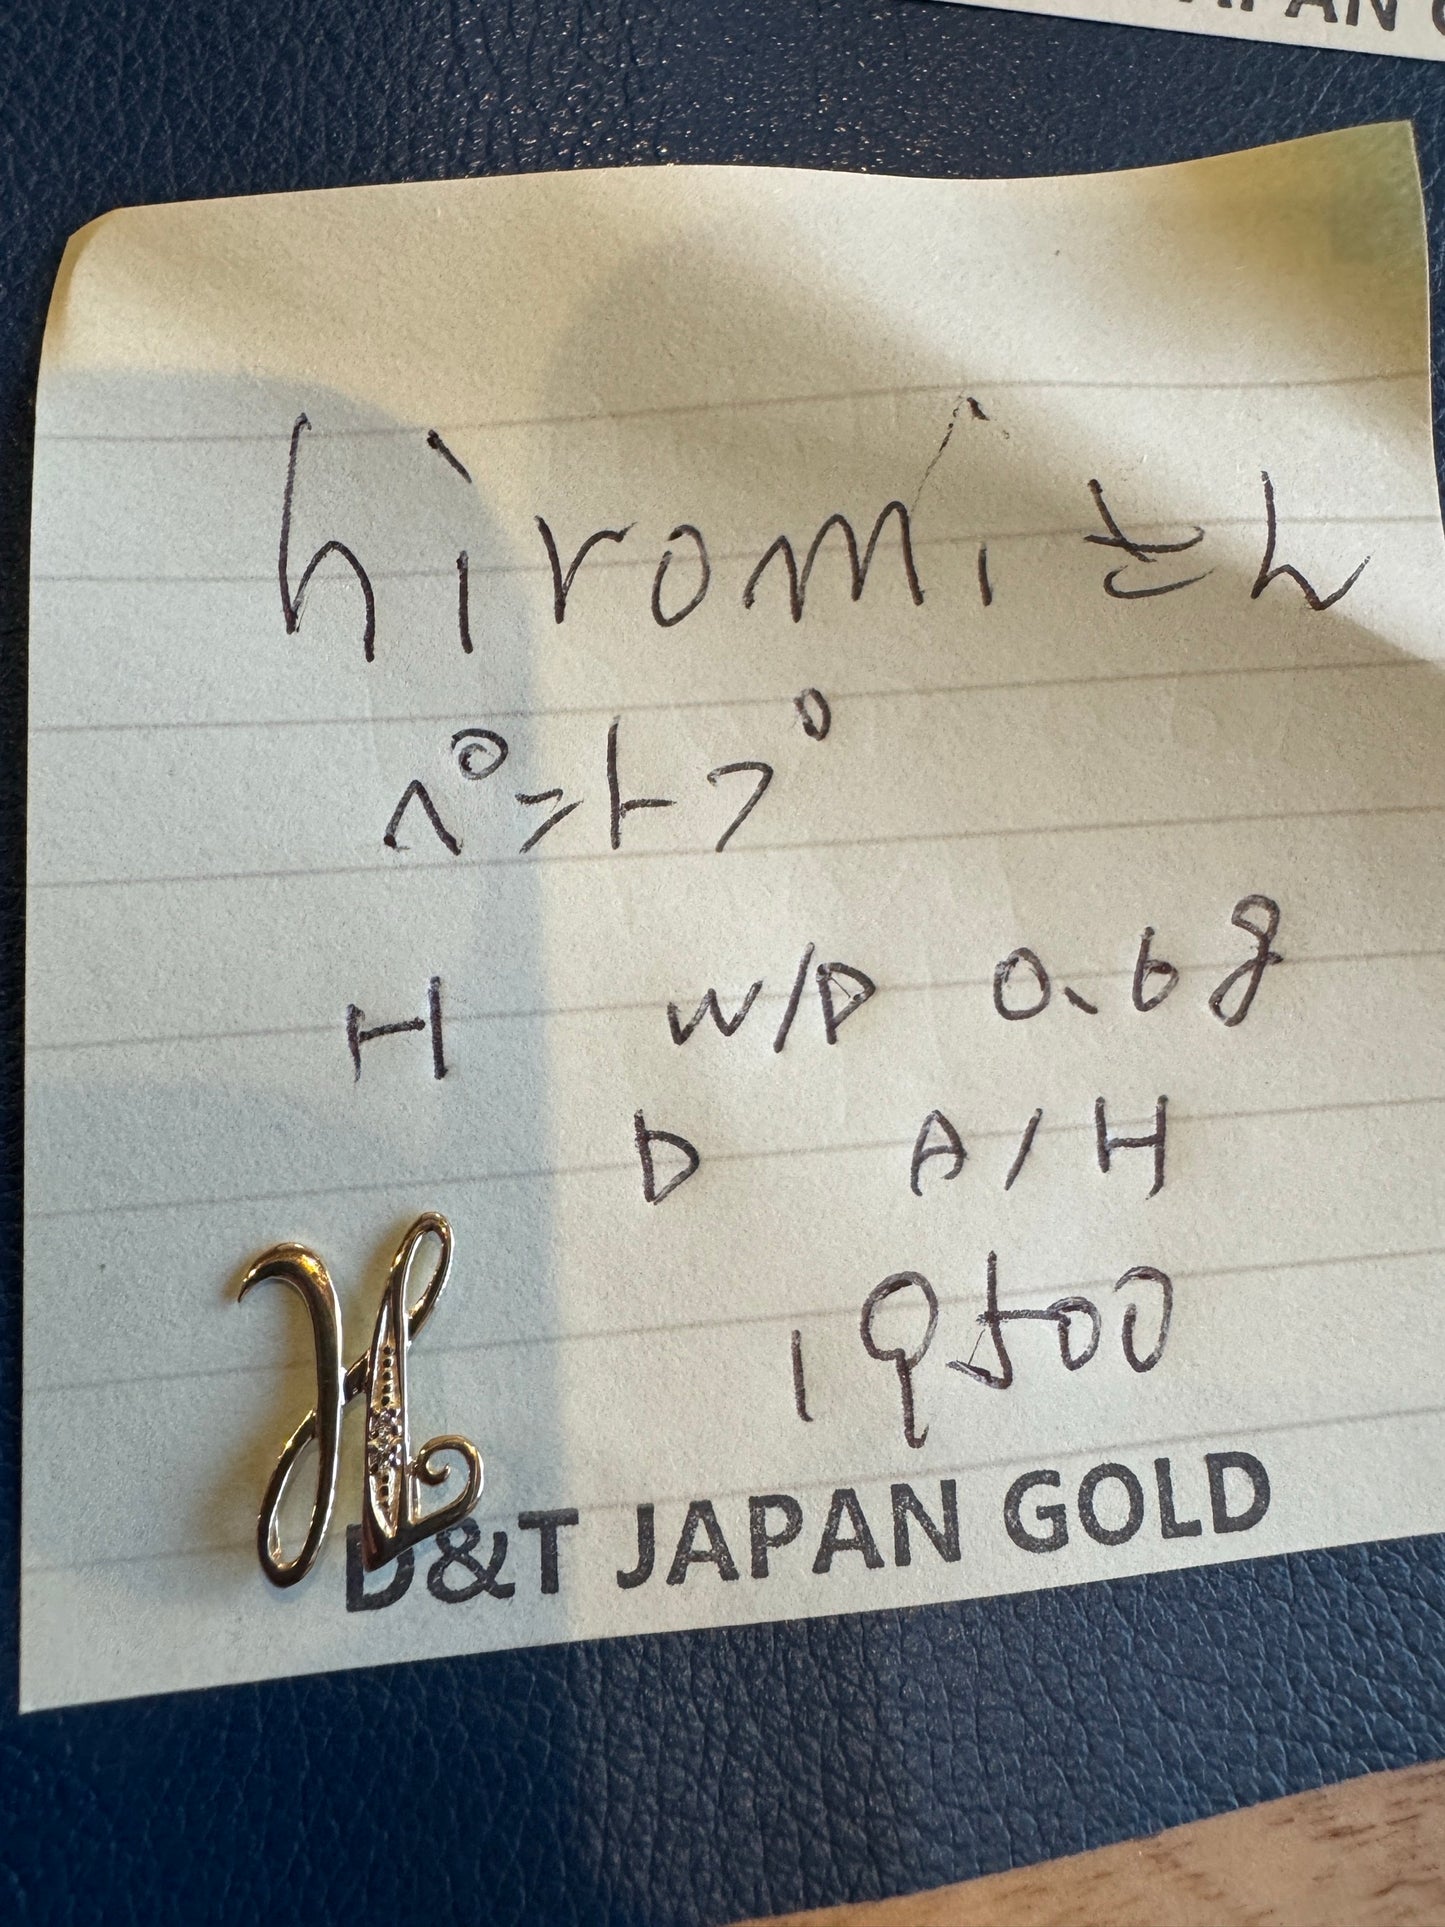 JAPAN
hiromiさん
ペントプ
H W/D 0.6g
D A/H
19500
D&T JAPAN GOLD